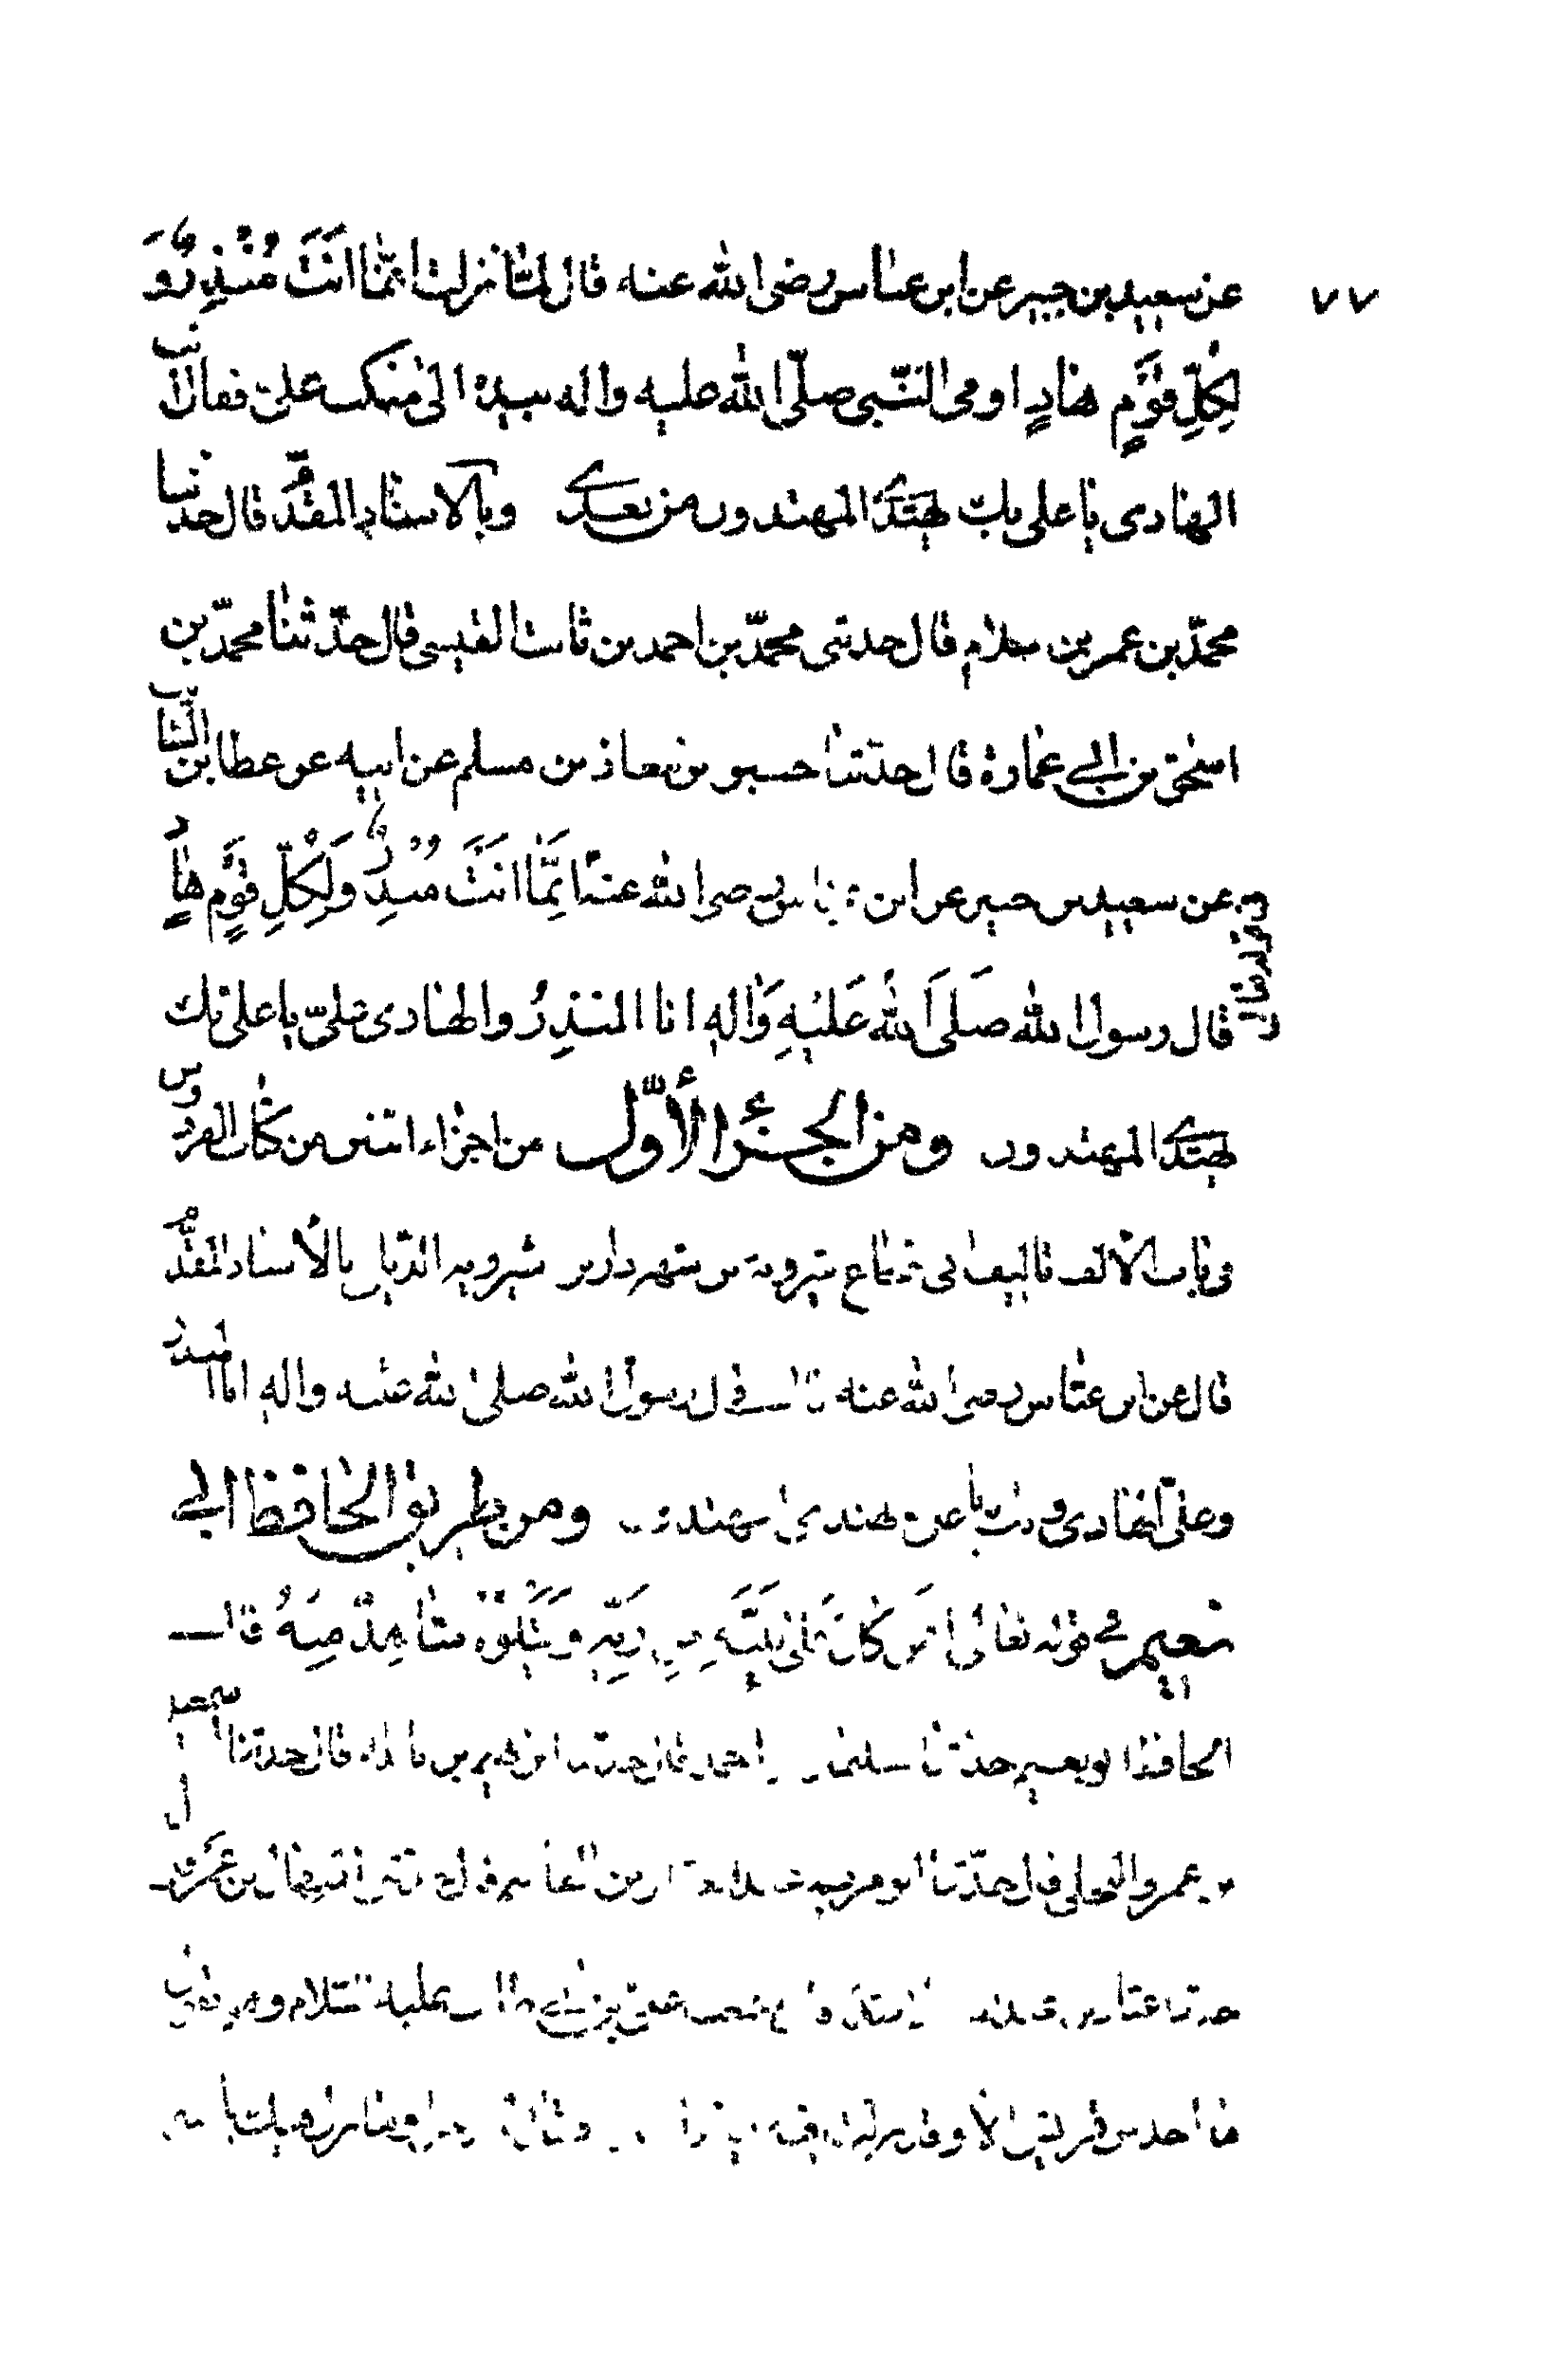 ٧٧
عن سعيد بن جبير عن ابن عباس رضى الله عنه قال لمّا نزلت انّما اَنْتَ مُنْذِرٌ وَ
لِكُلِّ قَوْمٍ هَادٍ اومى النّبى صلّى الله عليه واله بيده الى منكب علىّ فقال انت
الهادى يا على بك يهتدى المهتدون من بعدى وبالاسناد المقدّم قال حدثنا
محمّد بن عمر بن سلام قال حدثنى محمّد بن احمد بن ثابت القيسى قال حدّثنا محمد بن
اسحق بن ابى عمارة قال حدثنا حسين بن معاذ بن مسلم عن ابيه عن عطا بن السّائب
عن سعيد بن جبير عن ابن عباس رضى الله عنه اِنَّمَا اَنْتَ مُنذِرٌ وَلِكُلِّ قَوْمٍ هَادٍ
قال رسول الله صَلَى اَللهُ عَلَيْهِ وَالِهِ انا المنذِرُ والهادى علىّ يا على بك
يهتدى المهتدون ومن الجزء الأوّل من اجزاء اثنين من كتاب الفردوس
فى باب الألف تاليف ابى شجاع شيرويه بن شهردار بن شيرويه الديلمى بالأسناد المقدّم
قال عن ابن عبّاس رضى الله عنه قال قال رسول الله صلى الله عليه واله انا المنذر
وعلىّ الهادى وبك يا على يهتدى المهتدون ومن طريق الحافظ ابى
نعيم فى قوله تعالى اَفَمَنْ كَانَ عَلى بَيِّنَةٍ مِن رَبِّهِ وَيَتْلُوهُ شَاهِدٌ مِنهُ قال
الحافظ ابو نعيم حدثنا سليمن بن احمد قال حدثنا قال حدثنا سعيد
بن عمرو البجلى قال حدّثنا ابو مريم عبد الغفار بن القاسم قال
عليه السّلام وهو يقول
ما احد من قريش الا وقد نزلت فيه